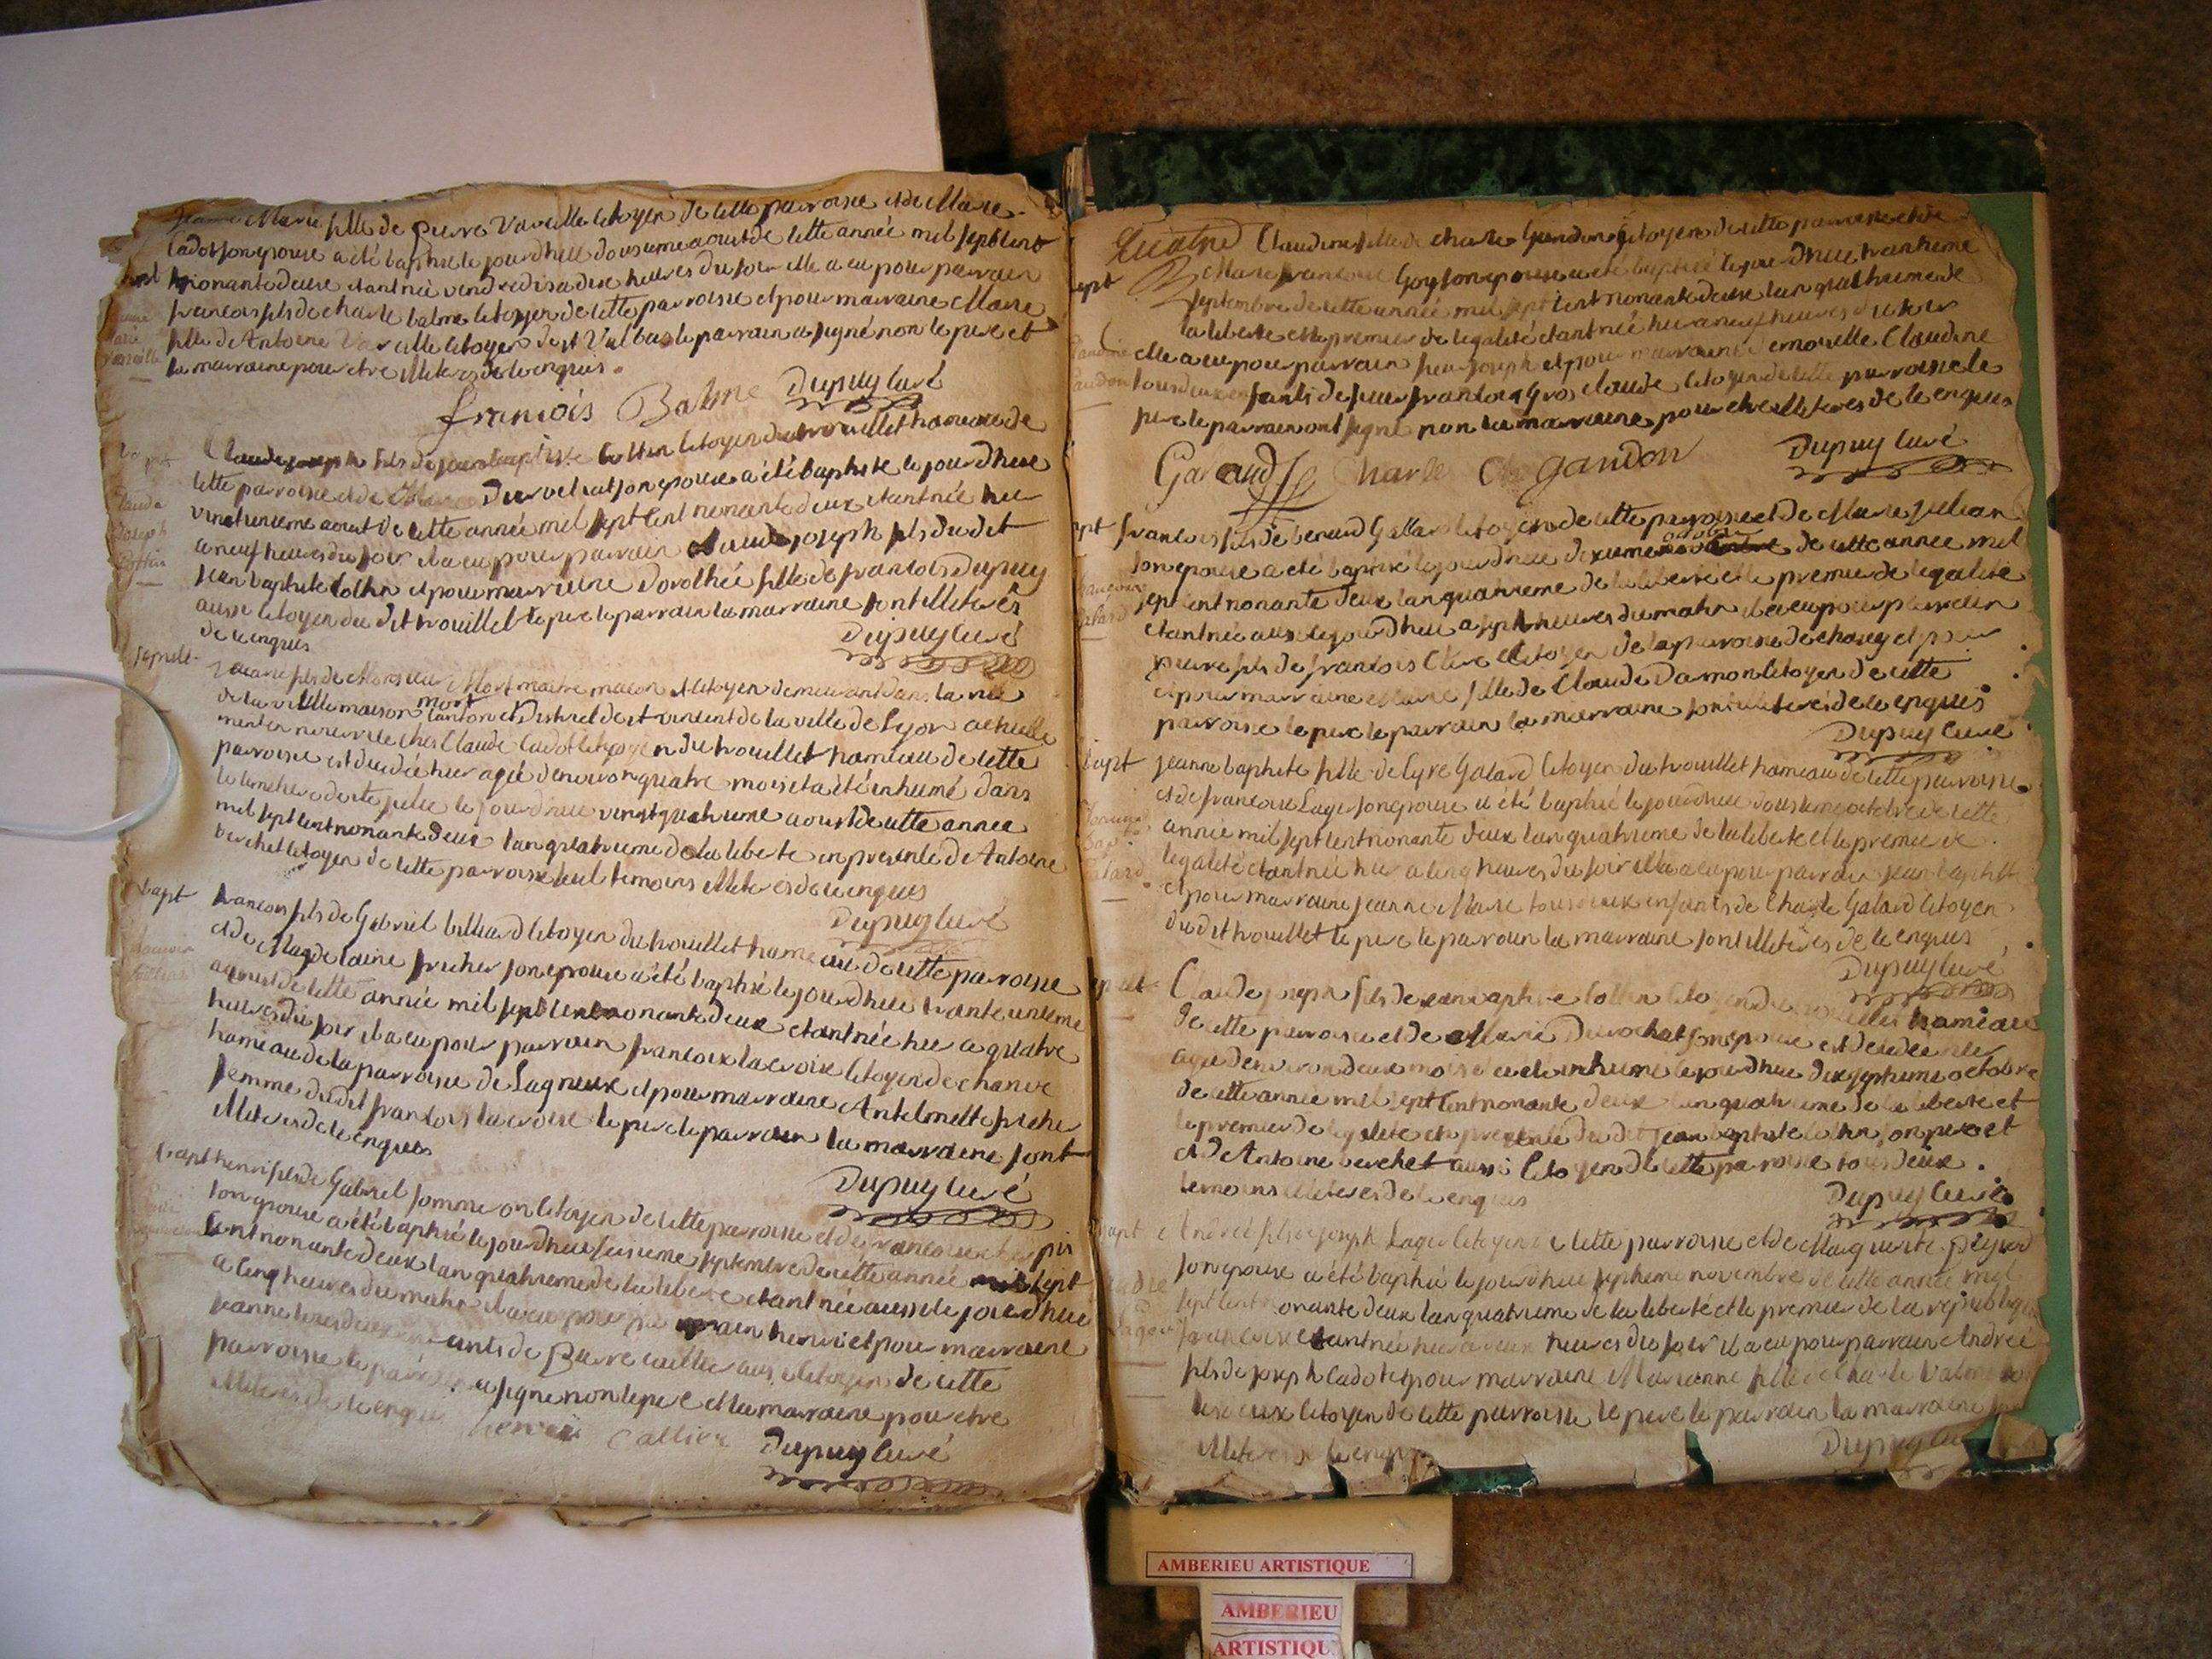 Jeanne Marie fille de pierre Vareille Citoyen de cette parroisse et de Marie
Cadot son epouse a été baptisé le jourdhuë dousieme aoust de cette année mil sept cent
nonante deux etant née vendredis a dix heures du soir elle a eu pour parrain
francois fils de charle balme Citoyen de cette parroisse et pour marraine Marie
fille de Antoine Vareille Citoyen de st Vulbas le parrain a signé non le pere et
la marraine pour etre illiteres de ce enquis
françois Balme Dupuy Curé
bapt
Claude joseph fils de jean baptiste Cottin Citoyen du trouillet hameaux de
Claude
Joseph
Cottin
cette parroisse et de Marie Durochat son epouse a été baptisé le jourdhuë
vingtunieme aoust de cette année mil sept cent nonante deux etant née hier
a neuf heures du soir il a eu pour parrain Claude joseph fils du dit
jean baptiste Cottin et pour marraine Dorothée fille de francois Dupuy
aussi Citoyen du dit trouillet le pere le parrain la marraine sont illiterés
de ce enquis
Dupuy Curé
sepult
fils de Monsieur Mort maitre macon et Citoyen demeurant dans la rue
de la vieille maison mort canton et District de st vincent de la ville de Lyon actuelle
ment en nourrice ches Claude Cadot Citoyen du trouillet hameau de cette
parroisse est decedée hier agé denviron quatre mois et a été inhumé dans
le cimetiere de ste julie le jourdhuë vingt quatrieme aoust de cette année
mil sept cent nonante deux lan quatrieme de la liberté en presence de Antoine
berchet Citoyen de cette parroisse seul temoins illiterés de ce enquis
Dupuy Curé
bapt
francois fils de Gabriel billiard Citoyen du trouillet hameau de cette parroisse
et de Magdelaine precher son epouse a été baptisé le jourdhuë trante unieme
aoust de cette année mil sept cent nonante deux etant née hier a quatre
heures du soir il a eu pour parrain francois lacroix Citoyen de chanve
hameau de la parroisse de Lagnieux et pour marraine Antelmette precher
femme du dit francois lacroix le pere le parrain la marraine sont
illiterés de ce enquis
Dupuy Curé
bapt
henri fils de Gabriel sommeron Citoyen de cette parroisse et de francoise
son epouse a été baptisé le jourdhuë septembre de cette année mil sept
cent nonante deux lan quatrieme de la liberté etant née aussi le jourdhuë
a cinq heures du matin il a eu pour parrain henri et pour marraine
jeanne tous deux enfants de Pierre cullier aussi Citoyen de cette
parroisse le parrain a signé non le pere et la marraine pour etre
illiterés de ce enquis henri Callier
Dupuy Curé
Claudine fille de charle Gandon Citoyen de cette parroisse et de
Marie francoise Goy son epouse a été baptisé le jourdhuë
septembre de cette année mil sept cent nonante deux lan quatrieme de
la liberté et le premier de legalité etant née hier a neuf heures du soir
Claudine
Gandon
elle a eu pour parrain sieur joseph et pour marraine demoiselle Claudine
tous deux enfants de sieur francois Gros claude Citoyen de cette parroisse le
pere le parrain ont signé non la marraine pour etre illiteres de ce enquis
Charle Gandon Dupuy Curé
bapt
francois fils de benard Gallard Citoyen de cette parroisse et de Marie jullian
son epouse a été baptisé le jourdhuë dixieme octobre de cette année mil
sept cent nonante deux lan quatrieme de la liberté et le premier de legalité
etant née aussi le jourdhuë a sept heures du matin il a eu pour parrain
pierre fils de francois Citoyen de la parroisse de chasey et pour
et pour marraine Marie fille de Claude Damon Citoyen de cette
parroisse le pere le parrain la marraine sont illiterés de ce enquis
Dupuy Curé
bapt
jeanne baptiste fille de Cyre Galard Citoyen du trouillet hameau de cette parroisse
et de francoise Lager son epouse a été baptisé le jourdhuë dousieme octobre de cette
année mil sept cent nonante deux lan quatrieme de la liberté et le premier de
legalité etant née hier a cinq heures du soir elle a eu pour parrain jean baptiste
et pour marraine jeanne Marie tous deux enfants de Charle Galard Citoyen
du dit trouillet le pere le parrain la marraine sont illiterés de ce enquis
Dupuy Curé
Claude joseph fils de jean baptiste Cottin Citoyen du trouillet hameau
de cette parroisse et de Marie Durochat son epouse est decedée hier
agé denviron deux mois et a été inhumé le jourdhuë dix septieme octobre
de cette année mil sept cent nonante deux lan quatrieme de la liberté et
le premier de legalité en presence du dit jean baptiste Cottin son pere et
et de Antoine berchet aussi Citoyen de cette parroisse tous deux
temoins illiterés de ce enquis
Dupuy Curé
bapt
Andrée fils de joseph Lager Citoyen de cette parroisse et de Marguerite
son epouse a été baptisé le jourdhuë septieme novembre de cette année mil
sept cent nonante deux lan quatrieme de la liberté et le premier de la republique
etant née hier a heures du soir il a eu pour parrain Andrée
fils de joseph Cadot et pour marraine Marianne fille de Charle
tous deux Citoyen de cette parroisse le pere le parrain la marraine
illiterés de ce enquis
Dupuy
AMBERIEU ARTISTIQUE
AMBERIEU
ARTISTIQU